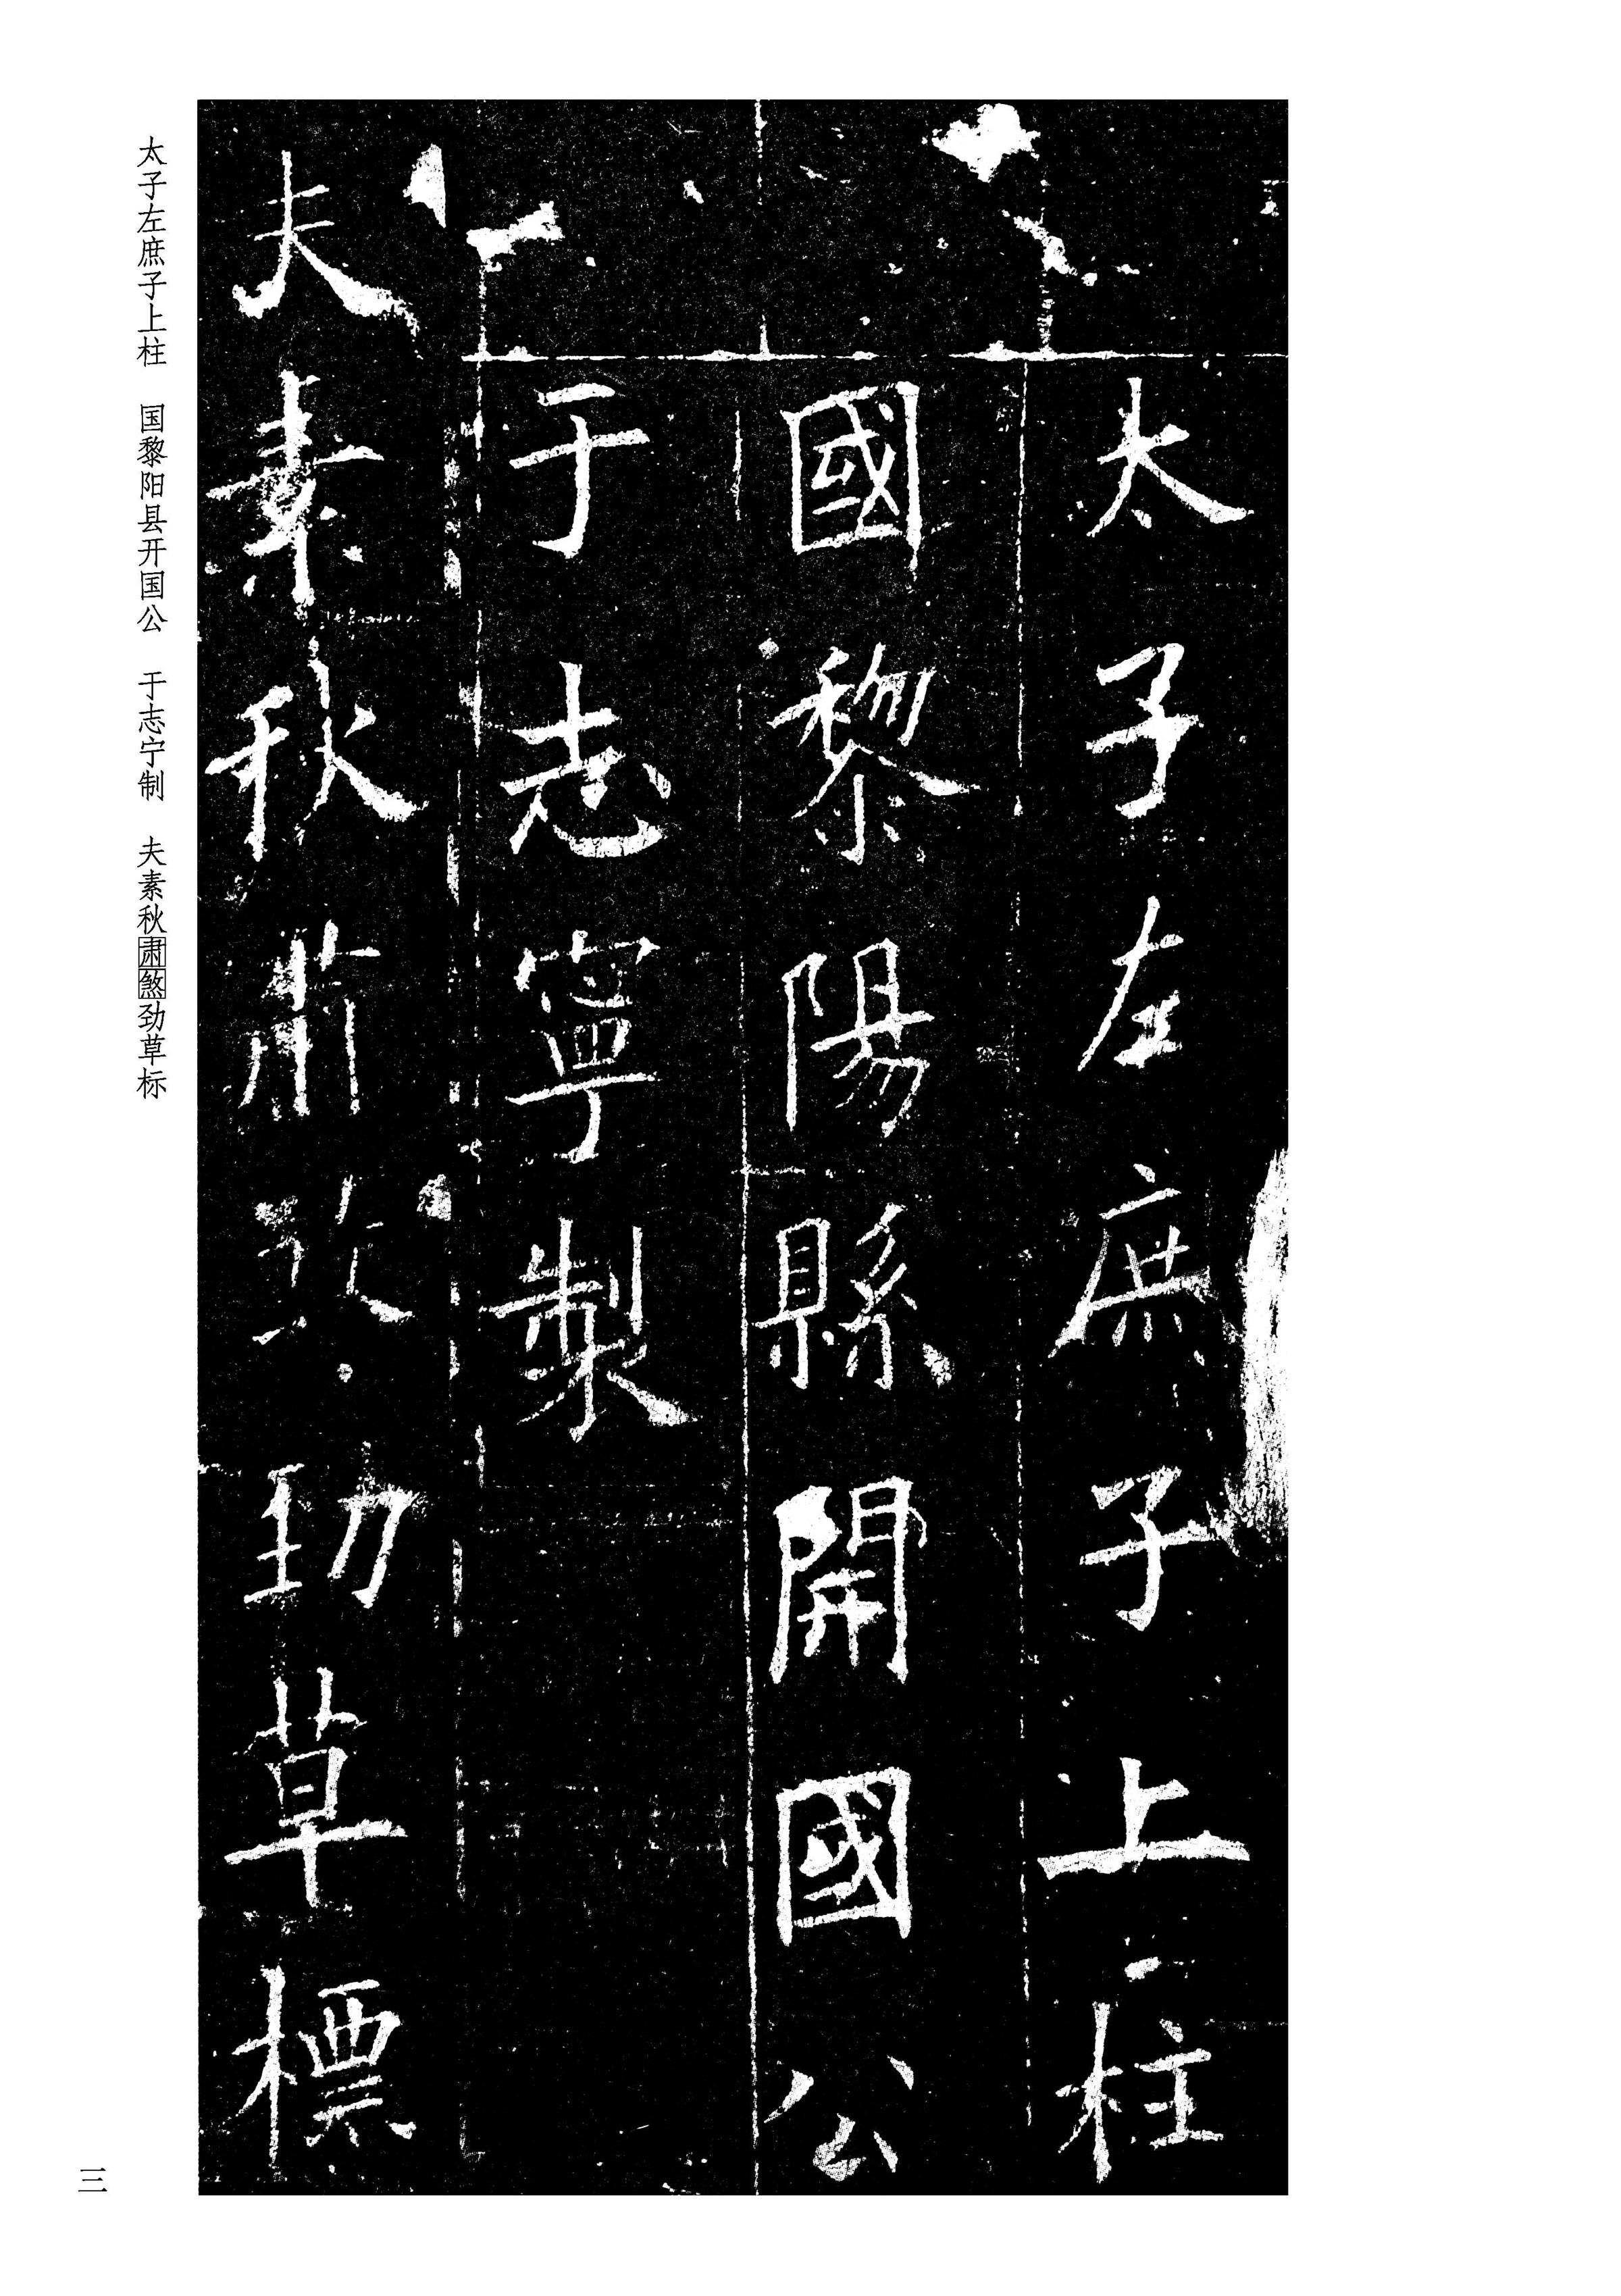 太子左庶子上柱
國黎陽縣開國公
于志寧製
夫素秋肅煞勁草標
太子左庶子上柱 国黎阳县开国公 于志宁制 夫素秋肃煞劲草标
三